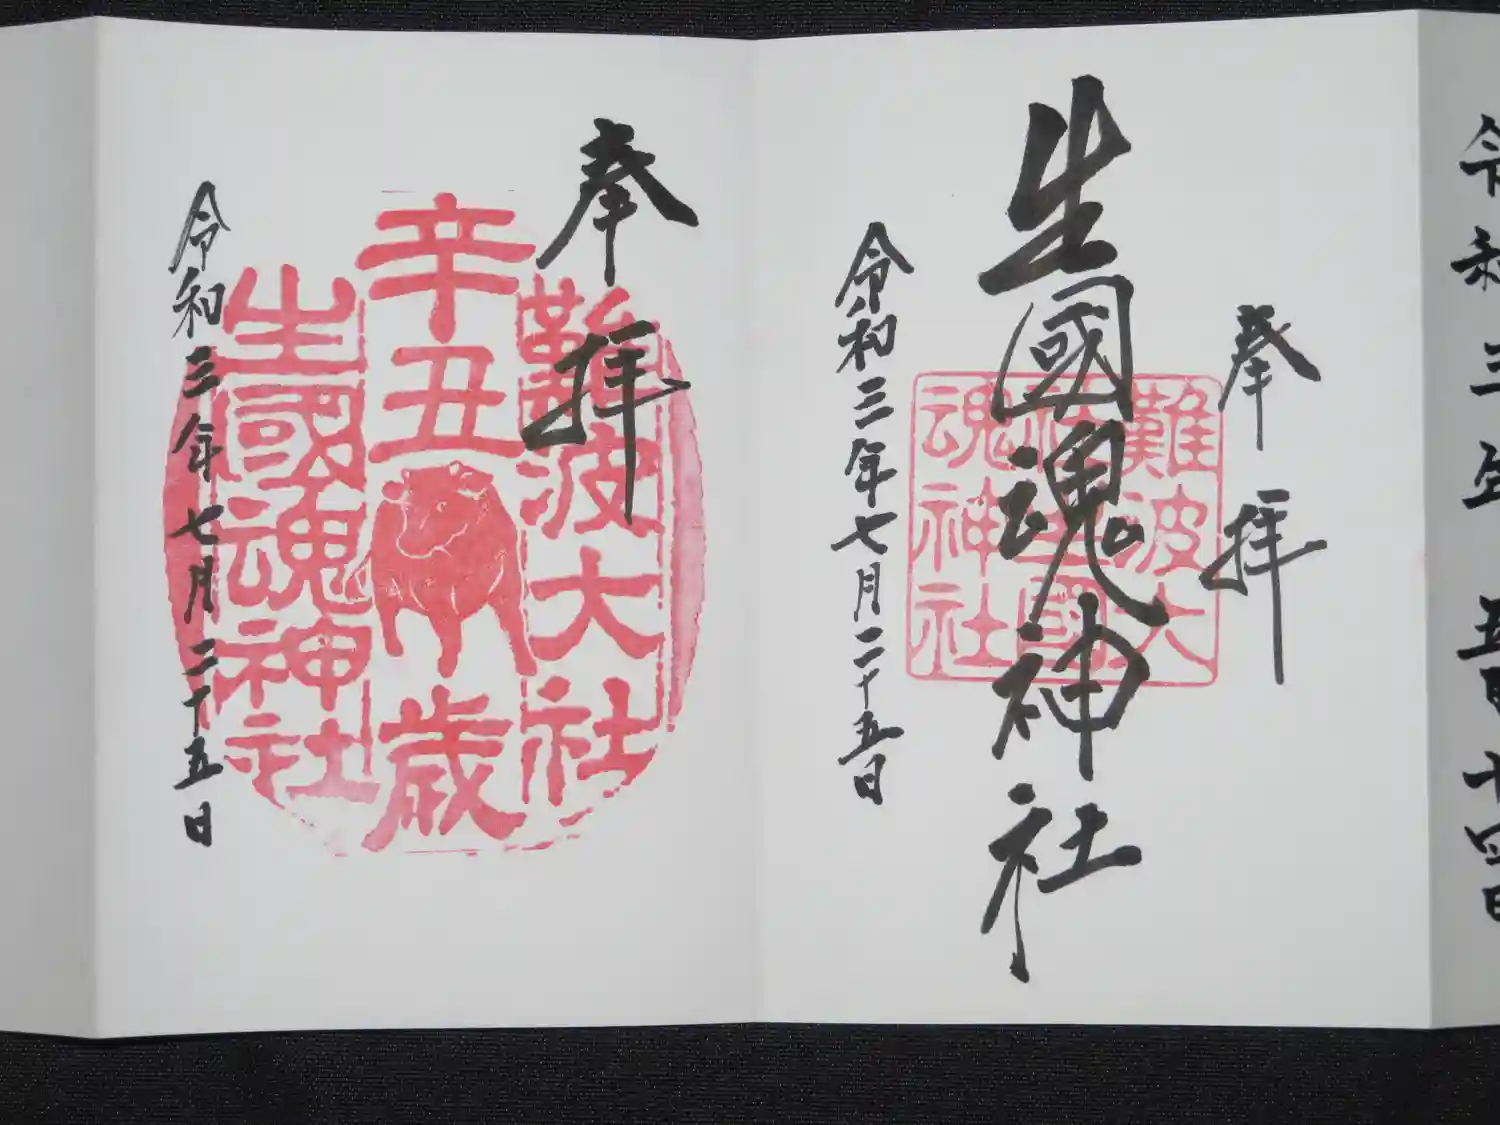 令和三年 五月十四日
奉拝
難波大
生國魂神社
社生國
魂神社
令和三年七月二十五日
奉拝
難波大社
辛丑歳
生國魂神社
令和三年七月二十五日